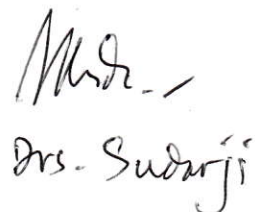 Drs. Sudarji